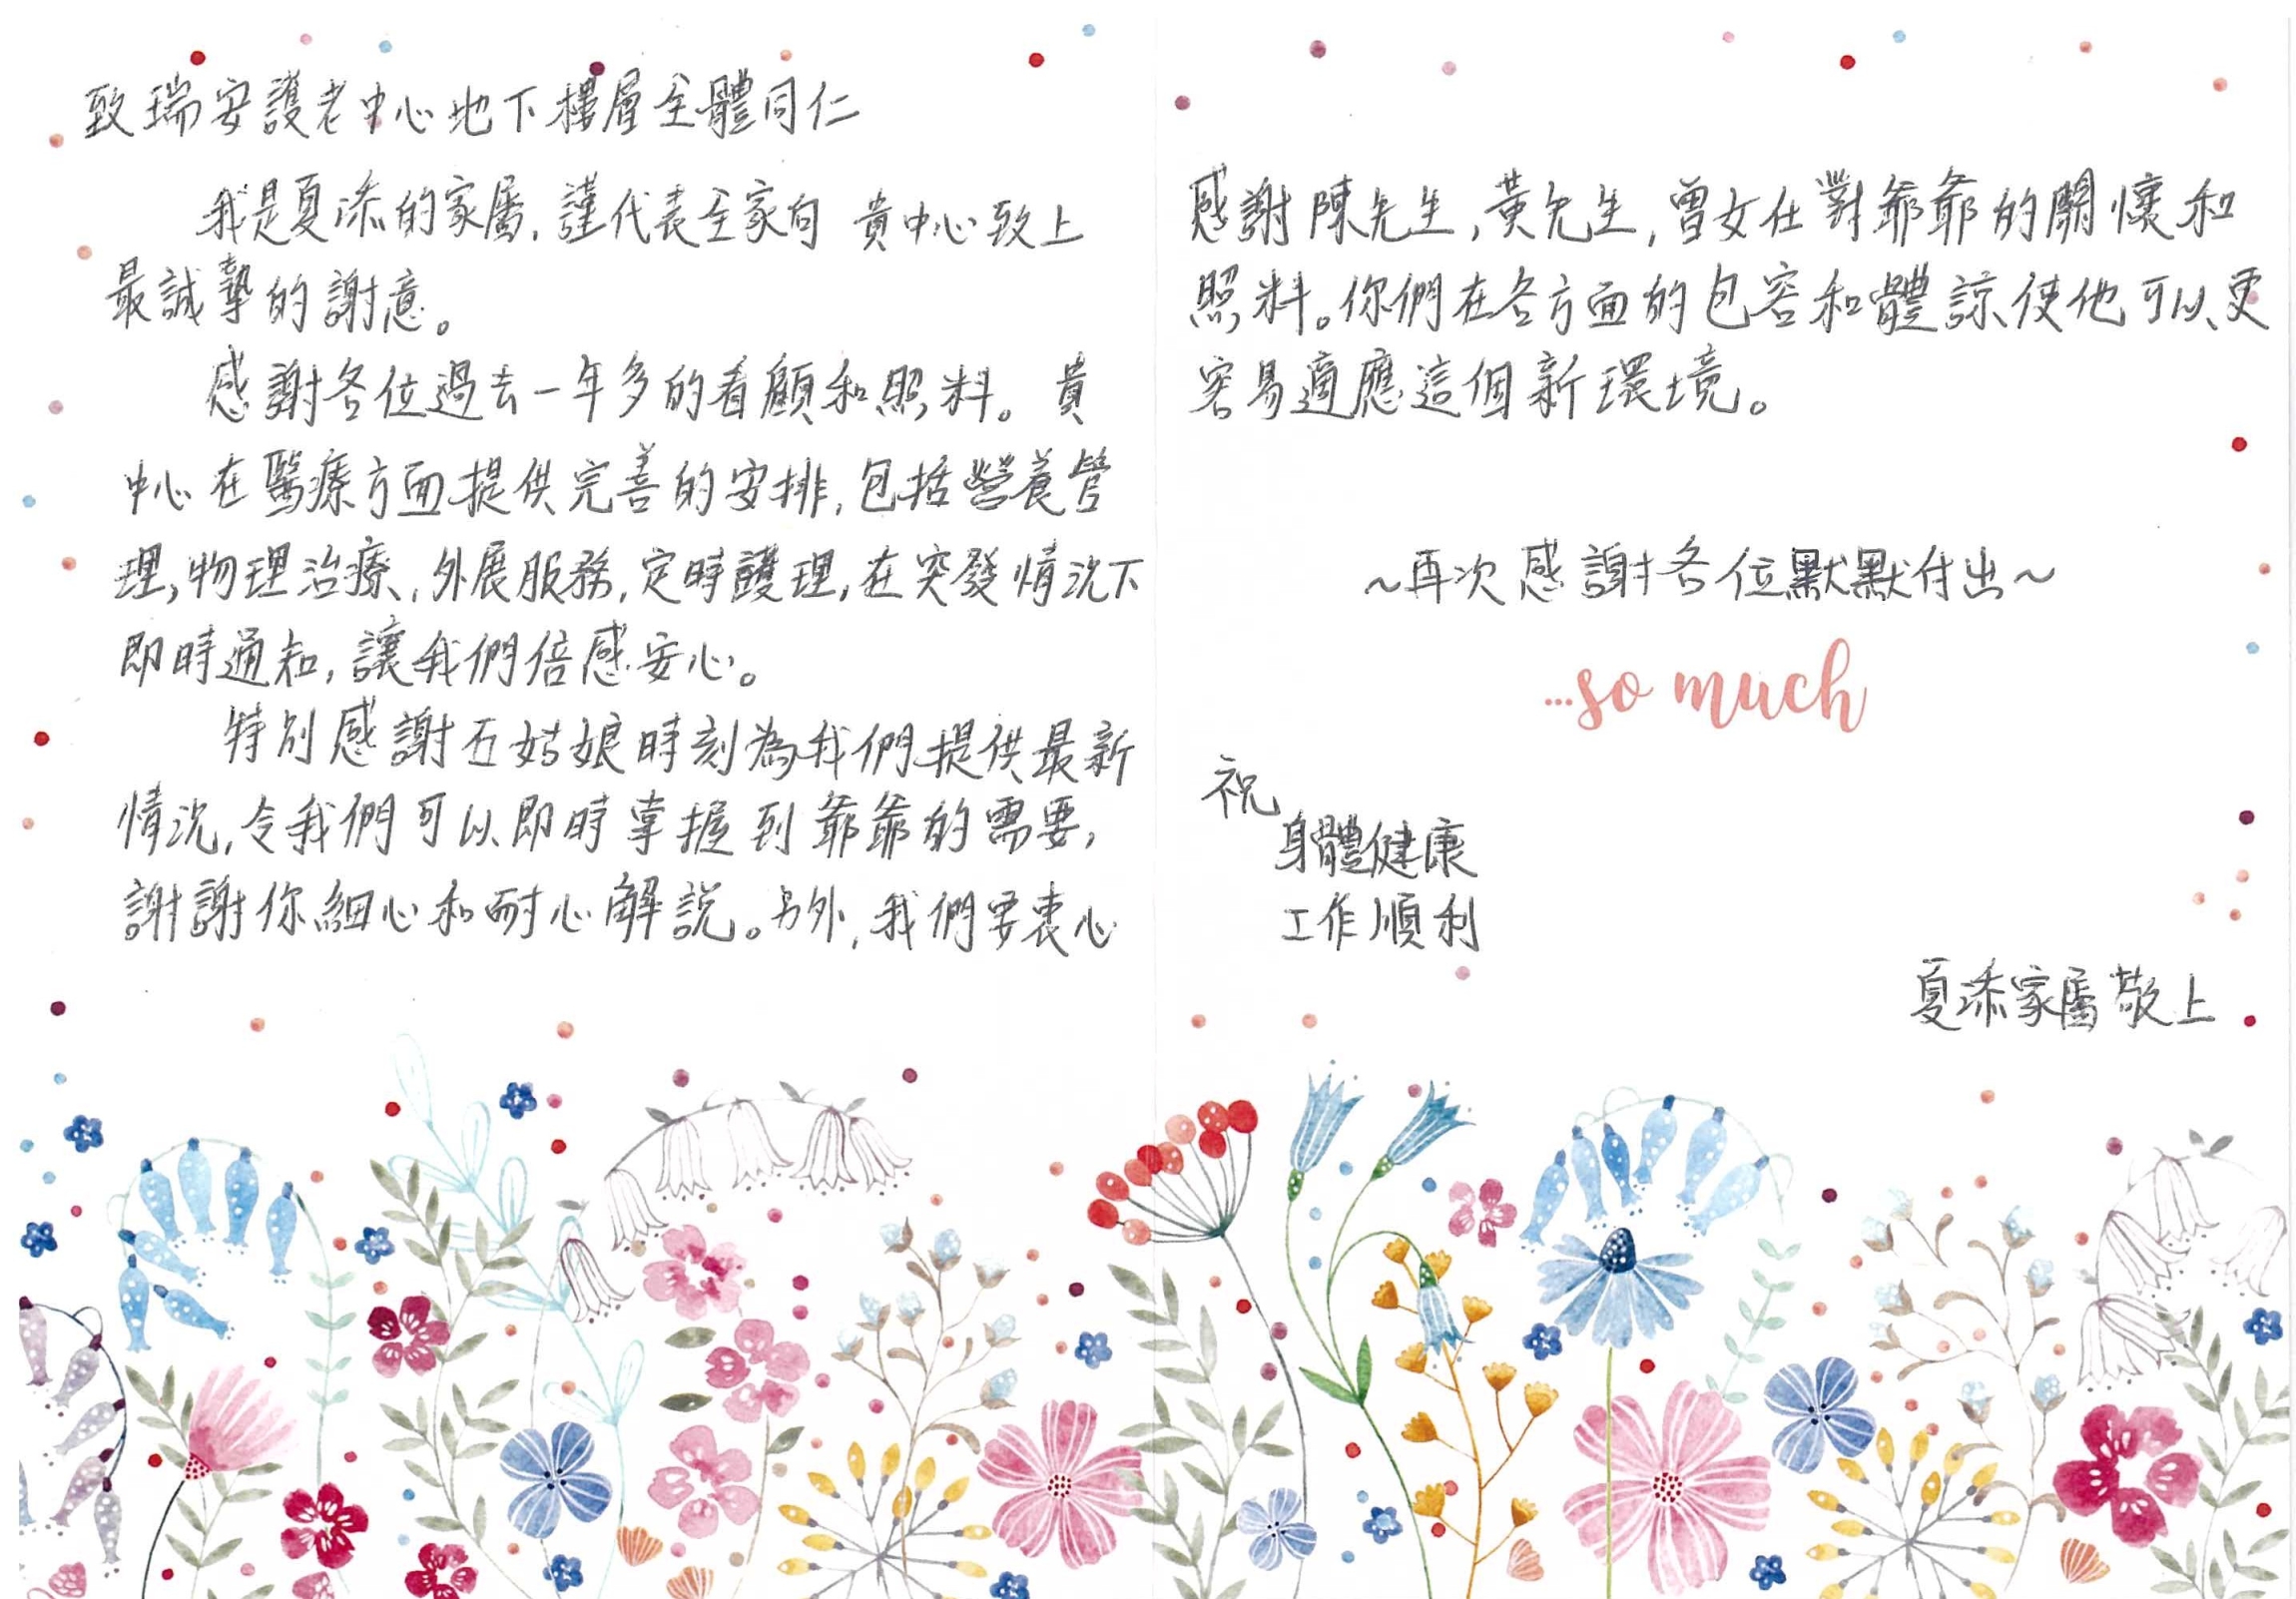 致瑞安護老中心地下樓層全體同仁
我是夏添的家屬,謹代表全家向 貴中心致上
最誠摯的謝意。
感謝各位過去一年多的看顧和照料。貴
中心在醫療方面提供完善的安排,包括營養管
理,物理治療,外展服務,定時護理,在突發情況下
即時通知,讓我們倍感安心。
特別感謝石姑娘時刻為我們提供最新
情況,令我們可以即時掌握到爺爺的需要,
謝謝你細心和耐心解説。另外,我們要衷心
感謝陳先生,黃先生,曾女仕對爺爺的關懷和
照料。你們在各方面的包容和體諒使他可以更
容易適應這個新環境。
~再次感謝各位默默付出~
...so much
祝
身體健康
工作順利
夏添家屬敬上